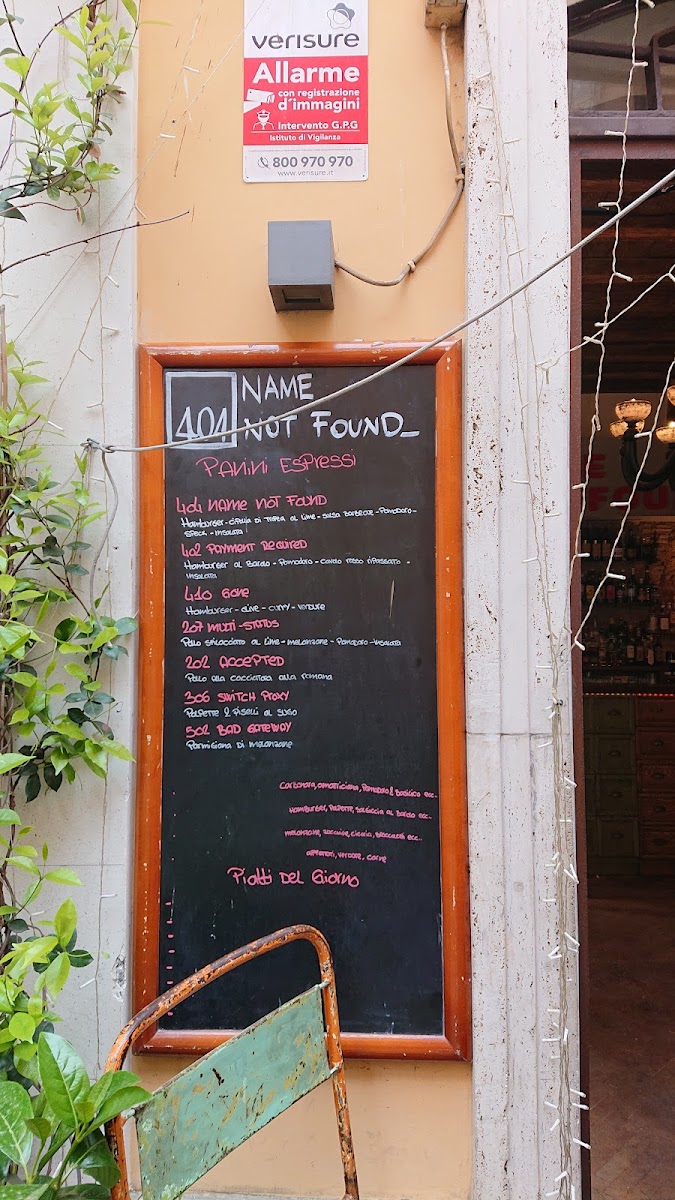 verisure
Allarme
con registrazione
d'immagini
Intervento G.P.G
Istituto di Vigilanza
800 970 970
www.verisure.it
404 NAME
NOT FOUND_
PANINI ESPRESSI
404 NAME NOT FOUND
Hamburger - CIPOLLA DI TROPEA AL LIME - SALSA BARBECUE - POMODORO -
SPECK - INSALATA
402 PAYMENT REQUIRED
Hamburger AL BARDO - POMODORO - CAVOLO ROSSO RIPASSATO -
INSALATA
410 GONE
Hamburger - OLIVE - CURRY - VERDURE
207 MULTI-STATUS
POLLO SFILACCIATO AL LIME - MELANZANE - POMODORO - INSALATA
202 ACCEPTED
POLLO ALLA CACCIATORA ALLA ROMANA
306 SWITCH PROXY
POLPETTE & PISELLI AL SUGO
502 BAD GATEWAY
PARMIGIANA DI MELANZANE
Carbonara, amatriciana, Pomodoro & Basilico ecc..
HAMBURGER, POLPETTE, SALSICCIA AL BARDO ecc..
melanzane, zucchine, cicoria, Broccoletti ecc..
affettati, verdure, carne
Piatti Del Giorno